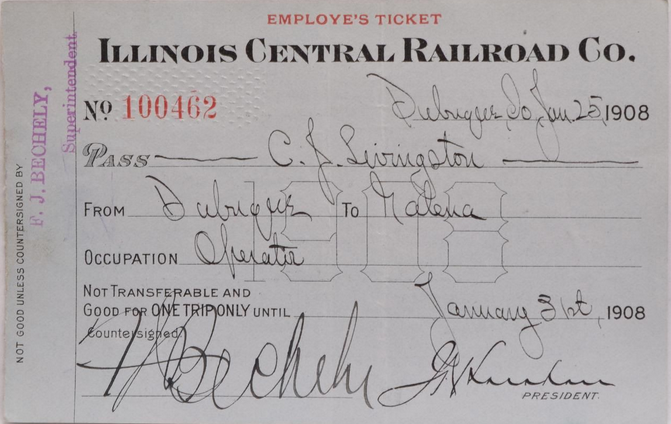 EMPLOYE'S TICKET
ILLINOIS CENTRAL RAILROAD CO.
No 100462
Dubuque Io, Jan. 25, 1908
PASS C. J. Livingston
FROM Dubuque To Galena
OCCUPATION Operator
NOT TRANSFERABLE AND
GOOD FOR ONE TRIP ONLY UNTIL January 31st, 1908
Countersigned
F J Bechely
J. T. Harahan
PRESIDENT.
NOT GOOD UNLESS COUNTERSIGNED BY
F. J. BECHELY,
Superintendent